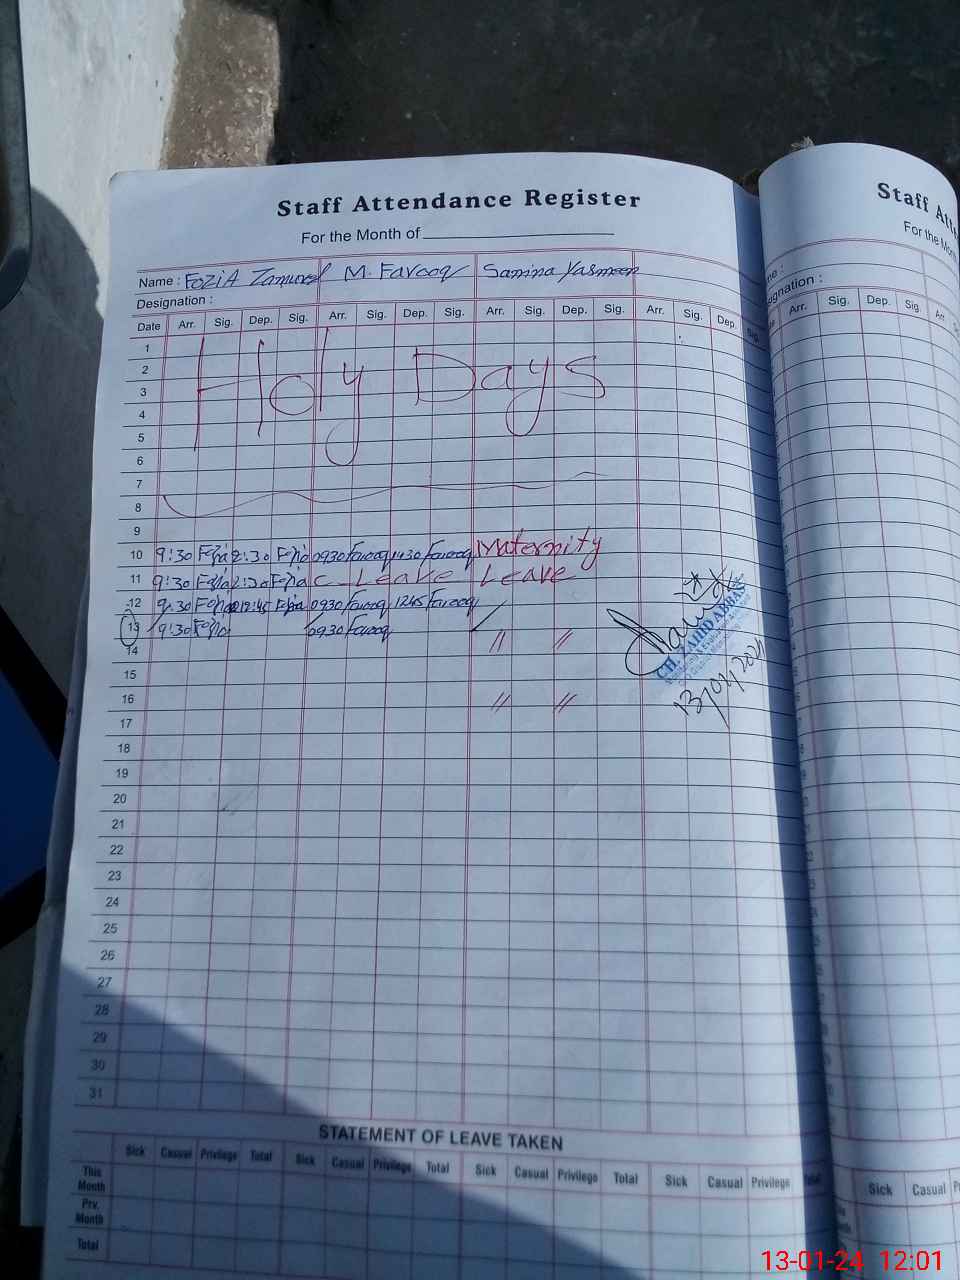 Staff Attendance Register
For the Month of
Name : Fozia M. Farooq Samina Yasmeen
Designation :
Date Arr. Sig. Dep. Sig. Arr. Sig. Dep. Sig. Arr. Sig. Dep. Sig. Arr. Sig. Dep. Sig.
1
2
3
Holy Days
4
5
6
7
8
9
10 9:30 Fozia 2:30 Fozia 0930 Farooq 1430 Farooq Maternity
11 9:30 Fozia Fozia C-Leave Leave
12 9:30 Fozia 12:45 Fozia 0930 Farooq 1245 Farooq
13 9:30 Fozia 0930 Farooq // //
14
15
16 // //
17
18
19
20
21
22
23
24
25
26
27
28
29
30
31
CH. ZAHID ABBAS
13/01/2024
STATEMENT OF LEAVE TAKEN
Sick Casual Privilege Total Sick Casual Privilege Total Sick Casual Privilege Total Sick Casual Privilege Total
This Month
Prv. Month
Total
Staff
For the
Sig. Dep. Sig. Arr.
Sick Casual
13-01-24 12:01